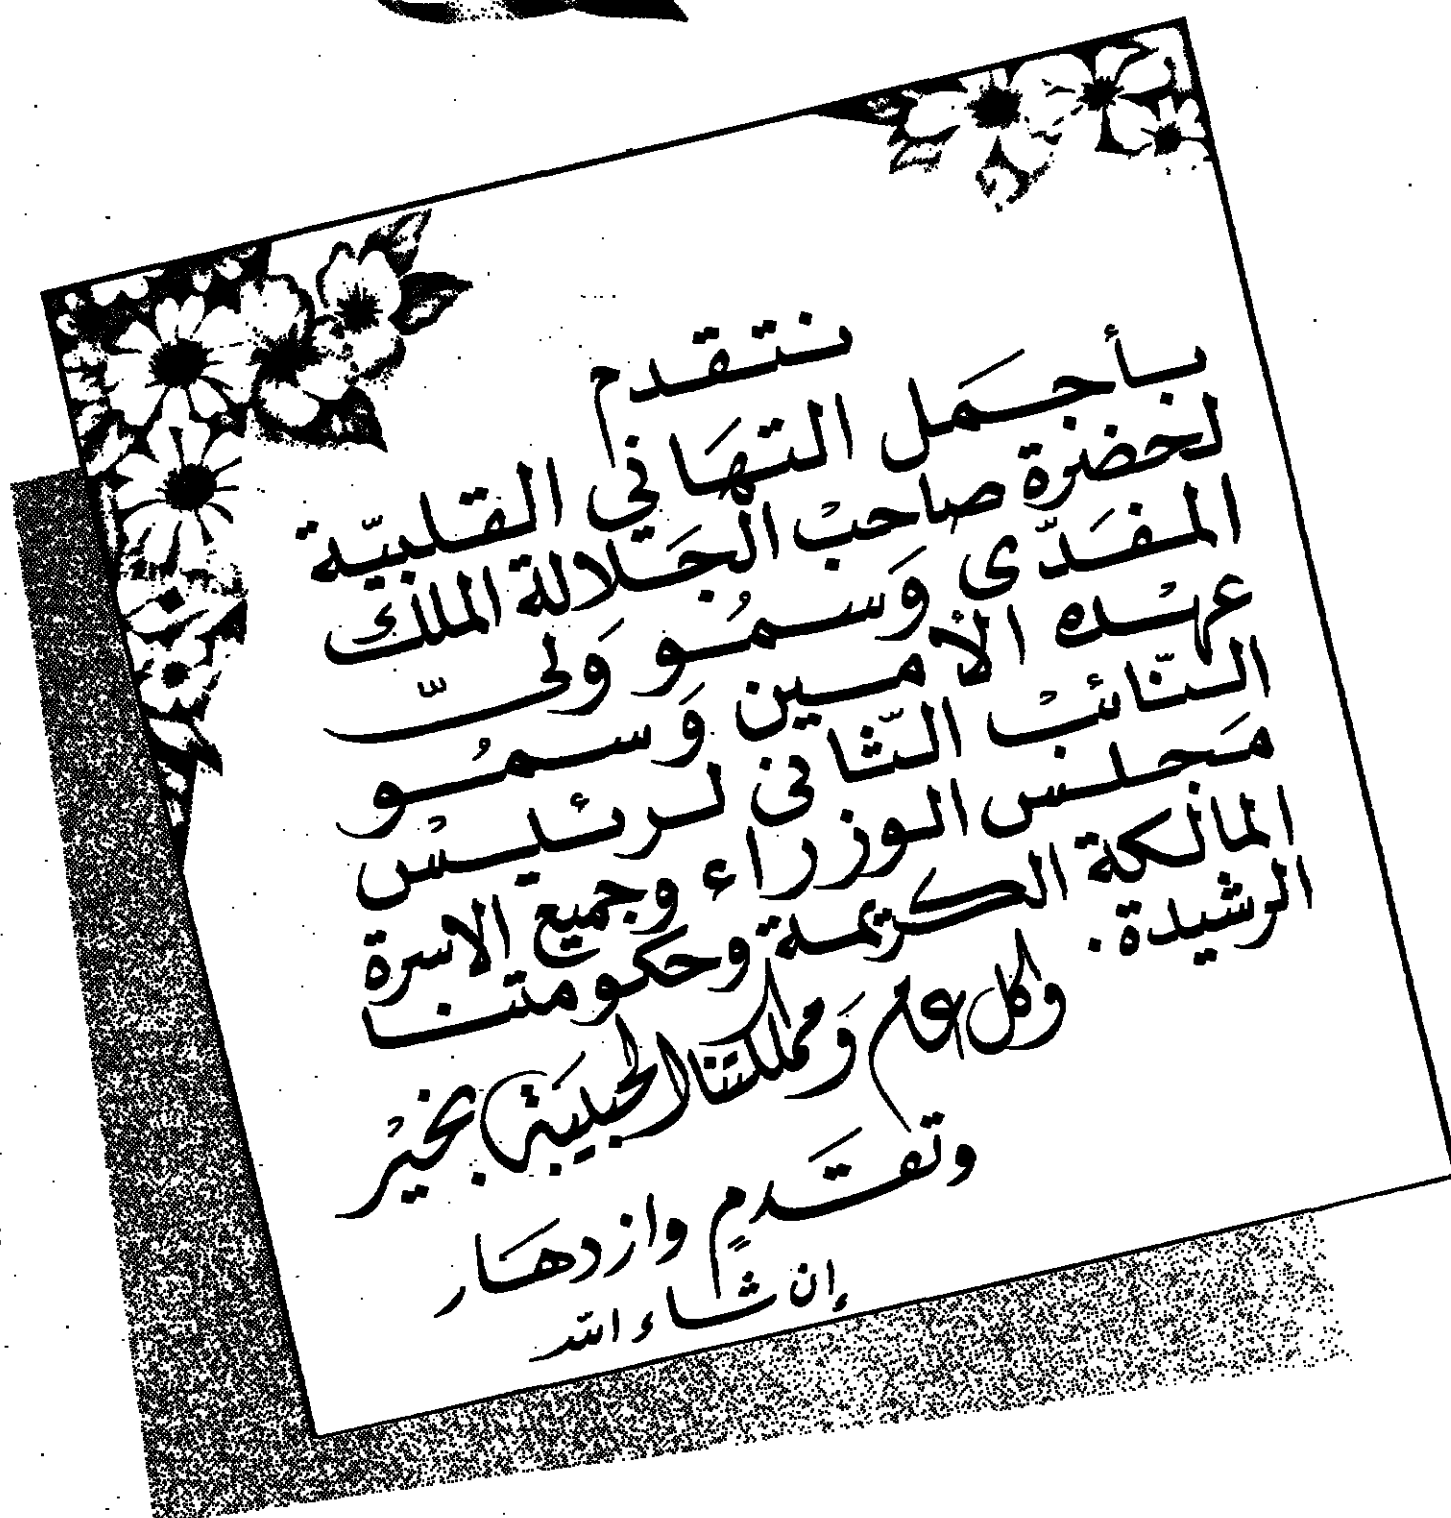 نتقدم
بأجمَل التهَاني القلبيّة
لحضرة صاحبْ الجَلالة الملك
المفَدّى وَسمُو وَليّ
عهْده الأمين وَسمُو
النّائبْ الثّاني لرئيسْ
مَجلس الوزراء وجميع الاسرة
المالكة الكريمة وحكومتنا
الرشيدة .
وكل عام وَمملكتنا الحبيبَة بخيرْ
وتقَدمٍ وازدهَار
إن شاء الله